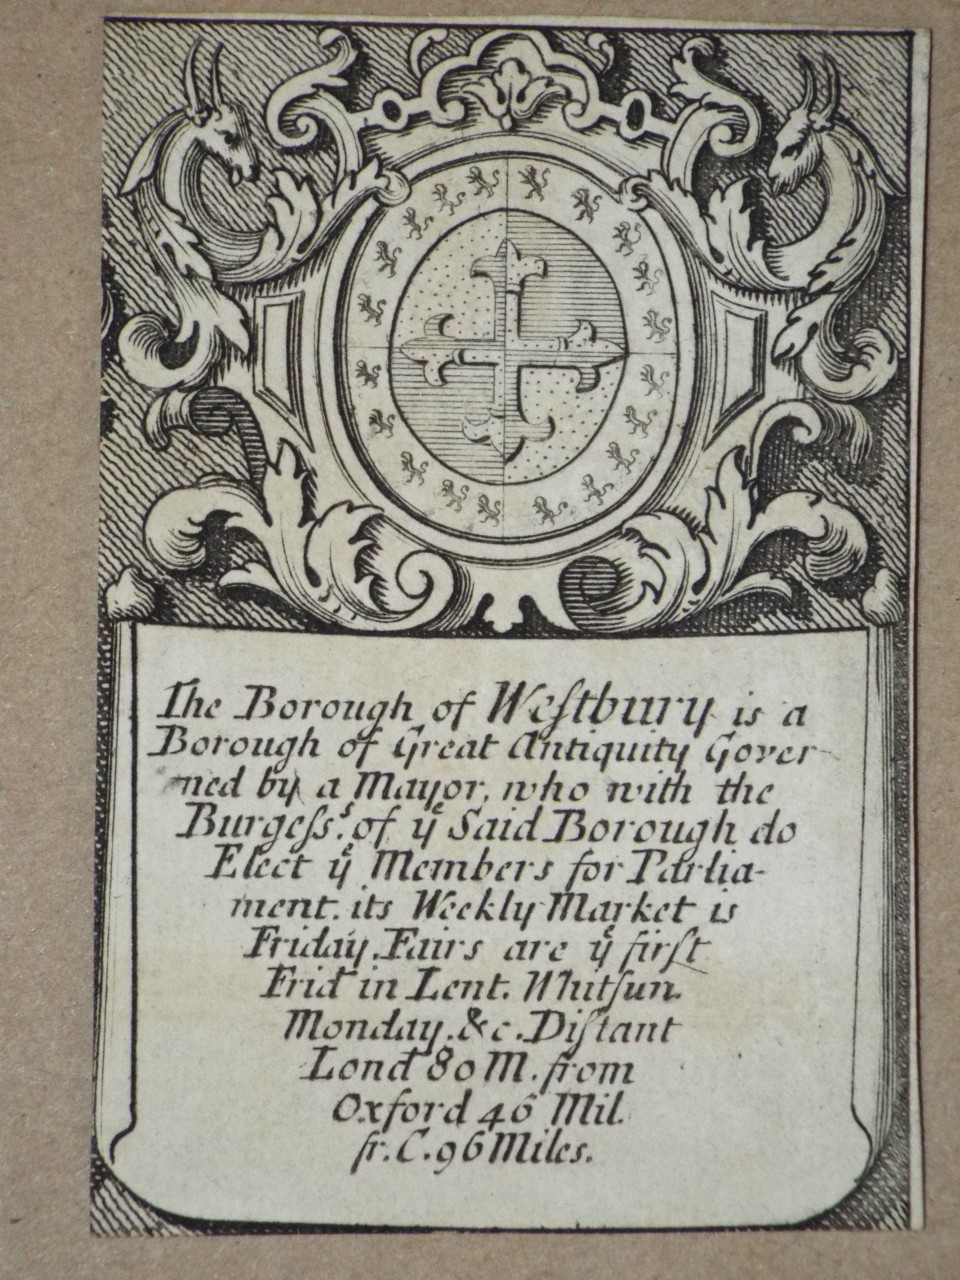 The Borough of Weſtbury is a
Borough of Great Antiquity Gover
ned by a Mayor, who with the
Burgeſs.ˢ of yͤ Said Borough do
Elect yͤ Members for Parlia-
ment. its Weekly Market is
Friday. Fairs are yͤ firſt
Frid. in Lent. Whitſun.
Monday. &c. Diſtant
Lond. 80 M. from
Oxford 46 Mil.
fr. C. 96 Miles.